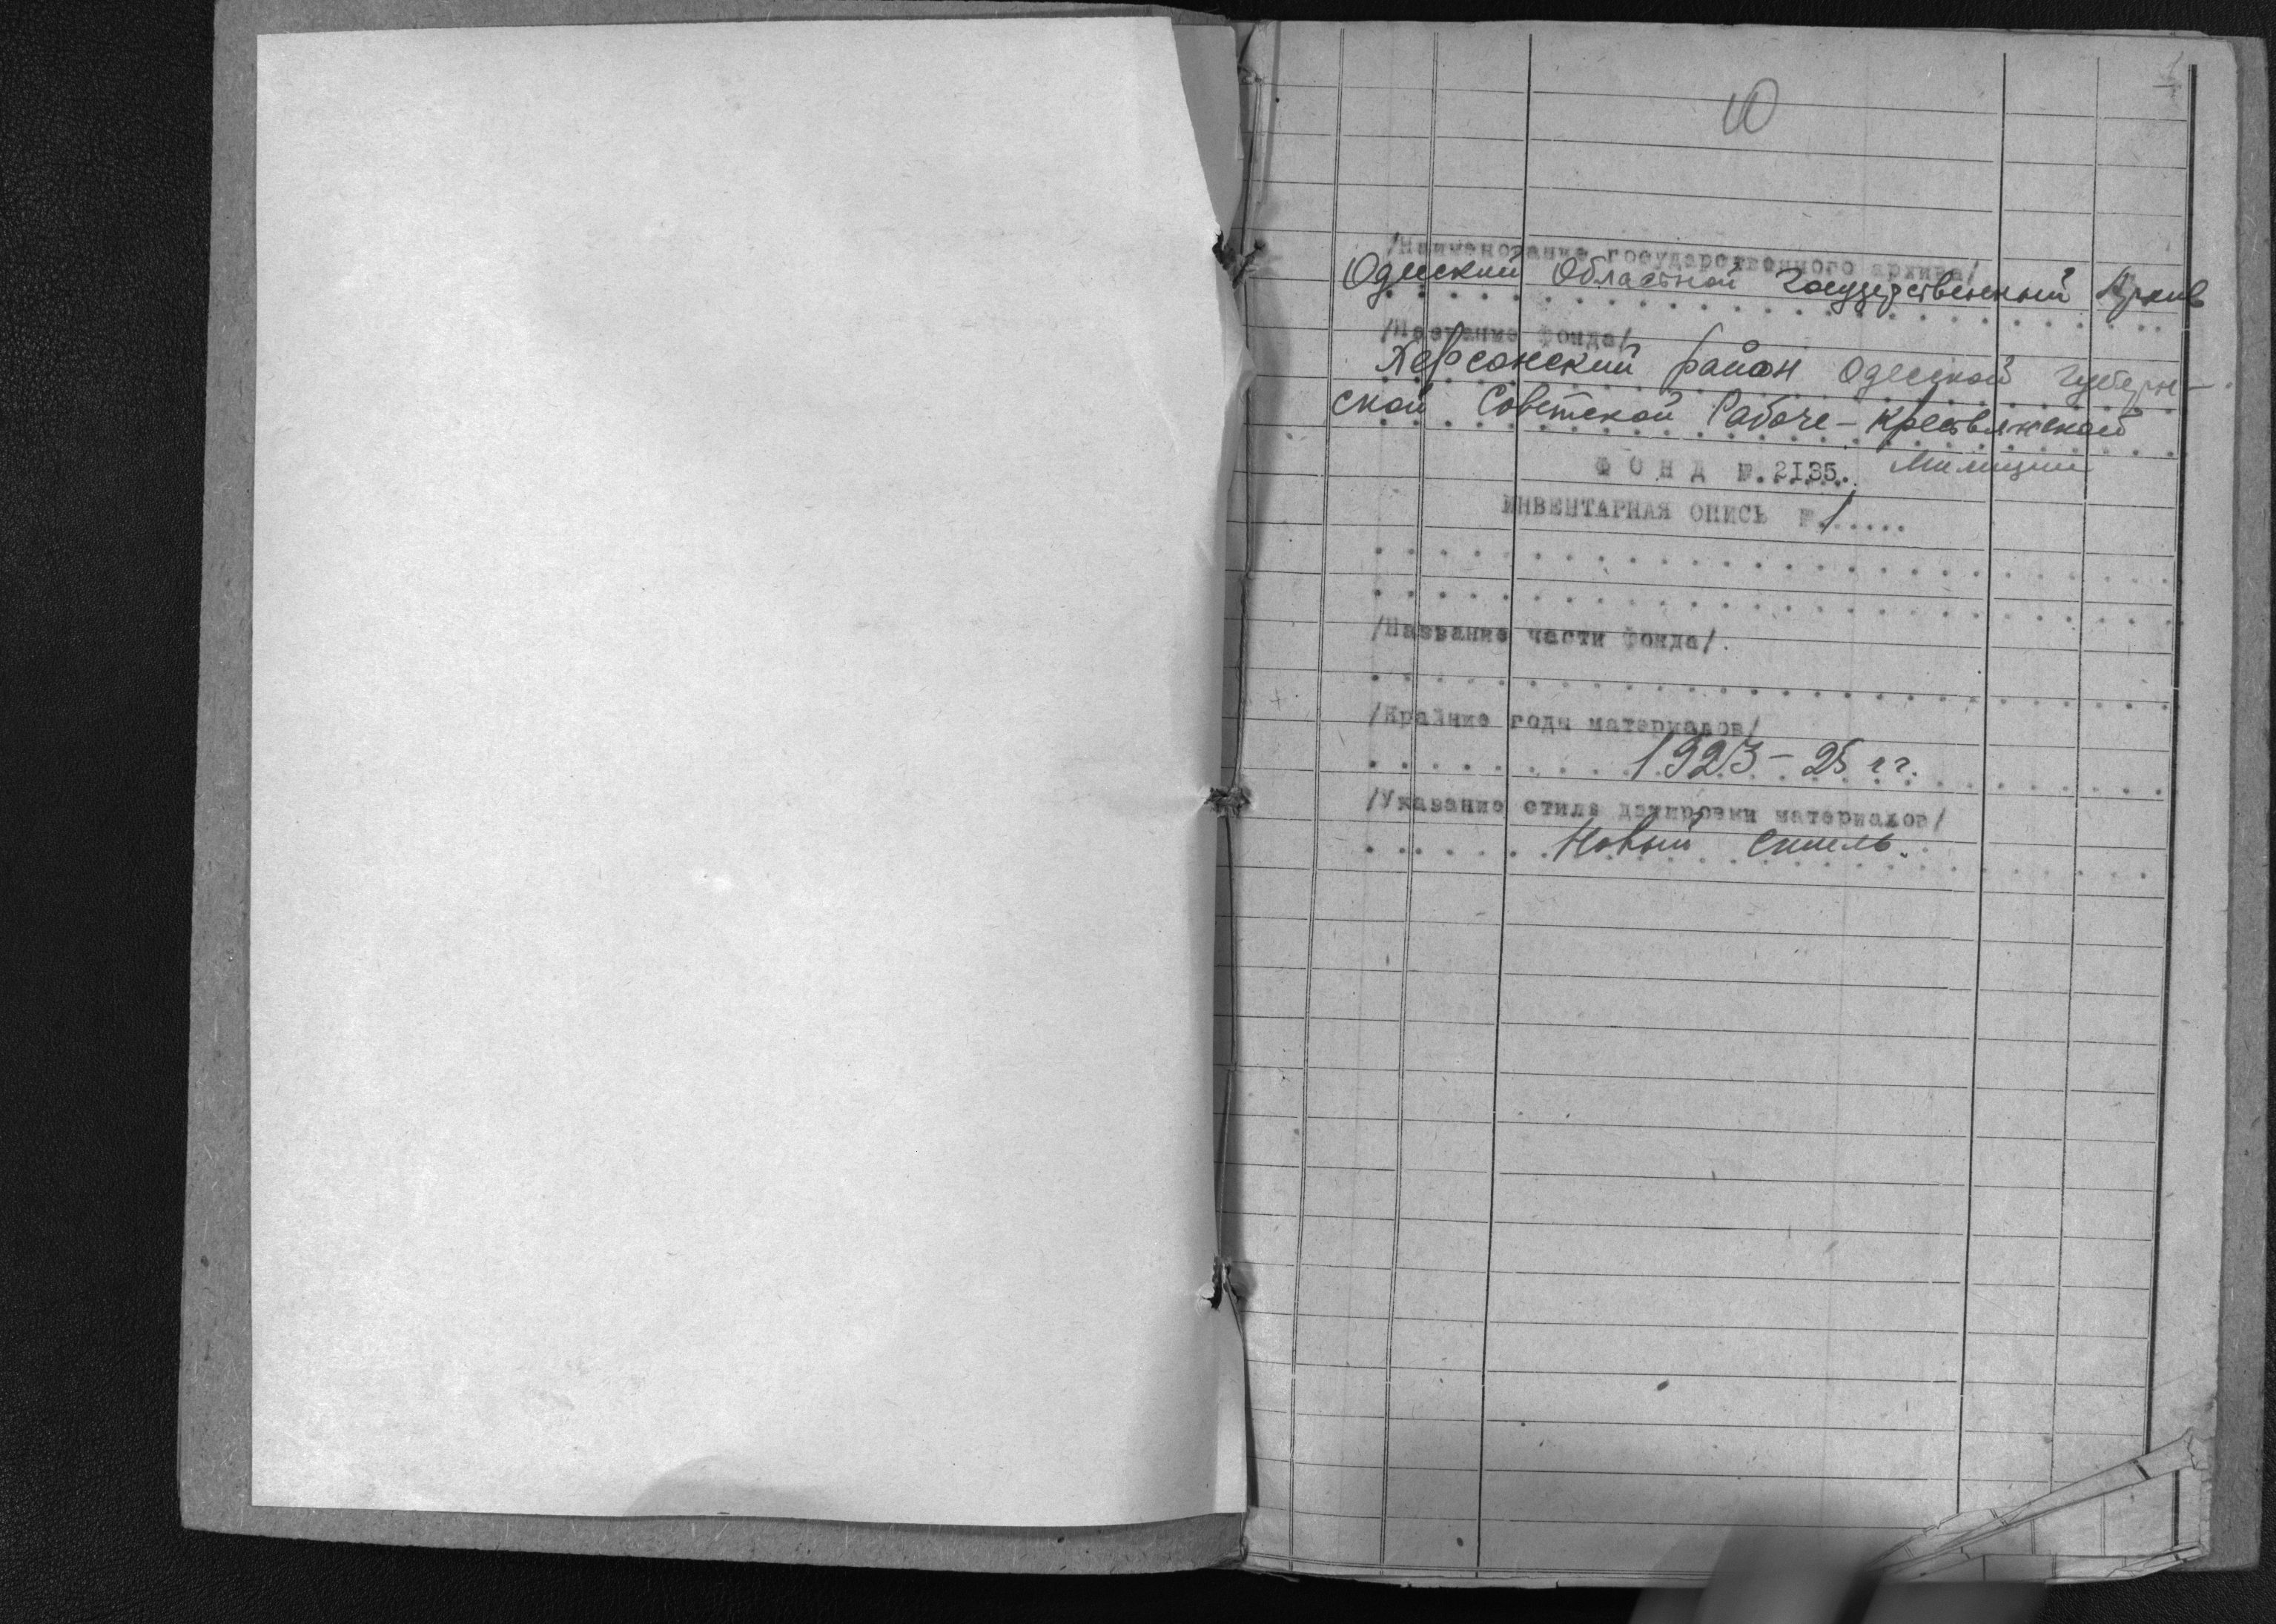 10
1
/Наименование государственного архива/
Одесский Областной Государственный Архив
/Название фонда/
Херсонский район Одесской Губерн-
ской Советской Рабоче-Крестьянской
ФОНД №.2135. Милиции
ИНВЕНТАРНАЯ ОПИСЬ №.1......
/Название части фонда/.
/Крайние годы материалов/
1923-25 гг.
/Указание стиля датировки материалов/
Новый стиль.